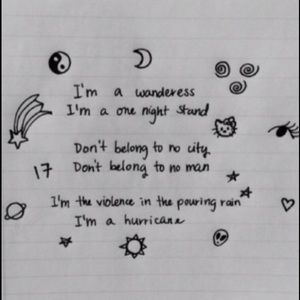 I'm a wanderess
I'm a one night stand
Don't belong to no city
17 Don't belong to no man
I'm the violence in the pouring rain
I'm a hurricane